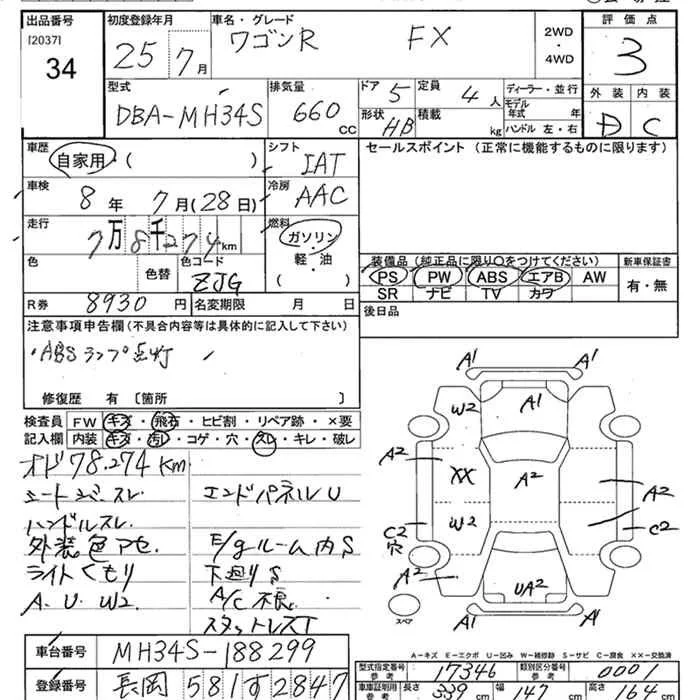 出品番号
[2037]
34
初度登録年月
25 7月
車名・グレード
ワゴンR FX
2WD
・
4WD
評価点
3
外装 内装
D C
型式
DBA-MH34S
排気量
660 cc
ドア 5
定員 4人
形状 HB
積載 kg
ディーラー・並行
モデル年式 年
ハンドル 左・右
車歴
自家用・( )
シフト
IAT
車検
8年 7月(28日)
冷房
AAC
走行
7万8千274km
燃料
ガソリン
・
軽・油
( )
色
色替
色コード
ZJG
R券 8930円
名変期限 月 日
セールスポイント(正常に機能するものに限ります)
装備品(純正品に限り○をつけてください)
PS PW ABS エアB AW
SR ナビ TV カワ
新車保証書
有・無
後日品
注意事項申告欄(不具合内容等は具体的に記入して下さい)
・ABSランプ点灯
修復歴 有 〔箇所 〕
検査員記入欄
FW キズ・飛石・ヒビ割・リペア跡・×要
内装 キズ・汚レ・コゲ・穴・スレ・キレ・破レ
オド78.274Km
シートシミ・スレ.
エンドパネルU
ハンドルスレ.
外装色アセ.
E/gルーム内S
ライトくもり
下廻りS
A.U.W2.
A/C不良.
スタットレスT
車台番号 MH34S-188299
登録番号 長岡581す2847
A1 A1
W2 A1
A2 XX A2 A2
C2 穴 W2 C2
A2 UA2
A1 A1
スペア
A-キズ E-エクボ U-凹み W-補修跡 S-サビ C-腐食 XX-交換済
型式指定番号 参考 17346
類別区分番号 参考 0001
車庫証明用 参考
長さ 339 cm
幅 147 cm
高さ 164 cm